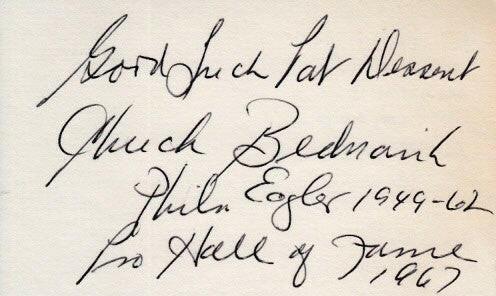 Good Luck Pat
Chuck Bednarik
Phila Eagles 1949-62
Pro Hall of Fame
1967